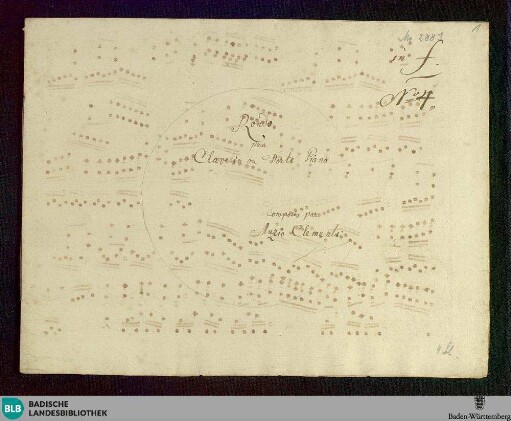 1
in f.
No 4
Rondo
pour
Clavecin ou Forte Piano
composée par
Muzio Clementi
BLB BADISCHE
LANDESBIBLIOTHEK
Baden-Württemberg